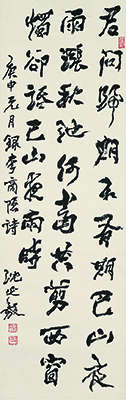 君問歸期未有期巴山夜
雨漲秋池何當共剪西窗
燭卻話巴山夜雨時
庚申元月錄李商隱詩 沈延毅